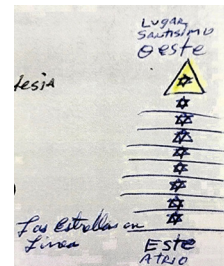 Lugar
Santisimo
Oeste
Las Estrellas en
Linea
Este
Atrio